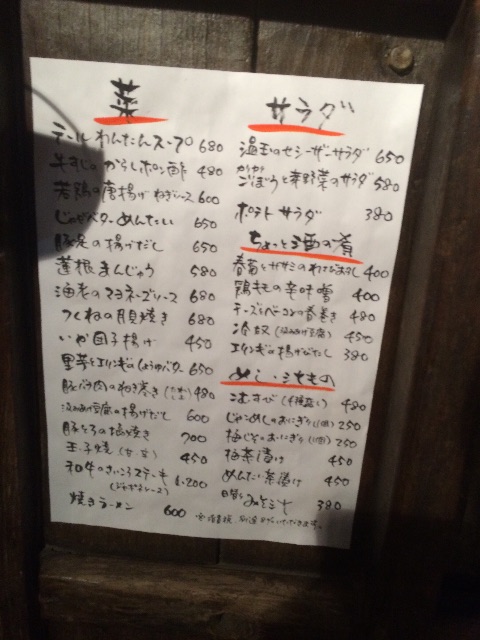 菜
テールわんたんスープ 680
牛すじのからしポン酢 480
若鶏の唐揚げねぎソース 600
じゃがバターめんたい 650
豚足の揚げだし 650
蓮根まんじゅう 580
海老のマヨネーズソース 680
つくねの貝焼き 680
いか団子揚げ 450
里芋とエリンギのしょうゆバター 650
豚バラ肉のねぎ巻き 480
汲み上げ豆腐の揚げだし 600
豚とろの塩焼き 700
玉子焼 450
和牛のさいころステーキ 1.200
焼きラーメン 600
サラダ
温玉のせシーザーサラダ 650
カリカリ
ごぼうと春野菜のサラダ 580
ポテトサラダ 380
ちょっと酒の肴
春菊とササミのわさびまぶし 400
鶏もも の辛味噌 400
チーズとベーコンの春巻き 480
冷奴（汲み上げ豆腐） 450
エリンギの揚げびたし 380
めし・汁もの
むすび 480
じゃこめしのおにぎり（1個）250
梅じそのおにぎり（1個）250
梅茶漬け 450
めんたい茶漬け 450
日替り みそ汁 380
※消費税、別途頂いただきます。